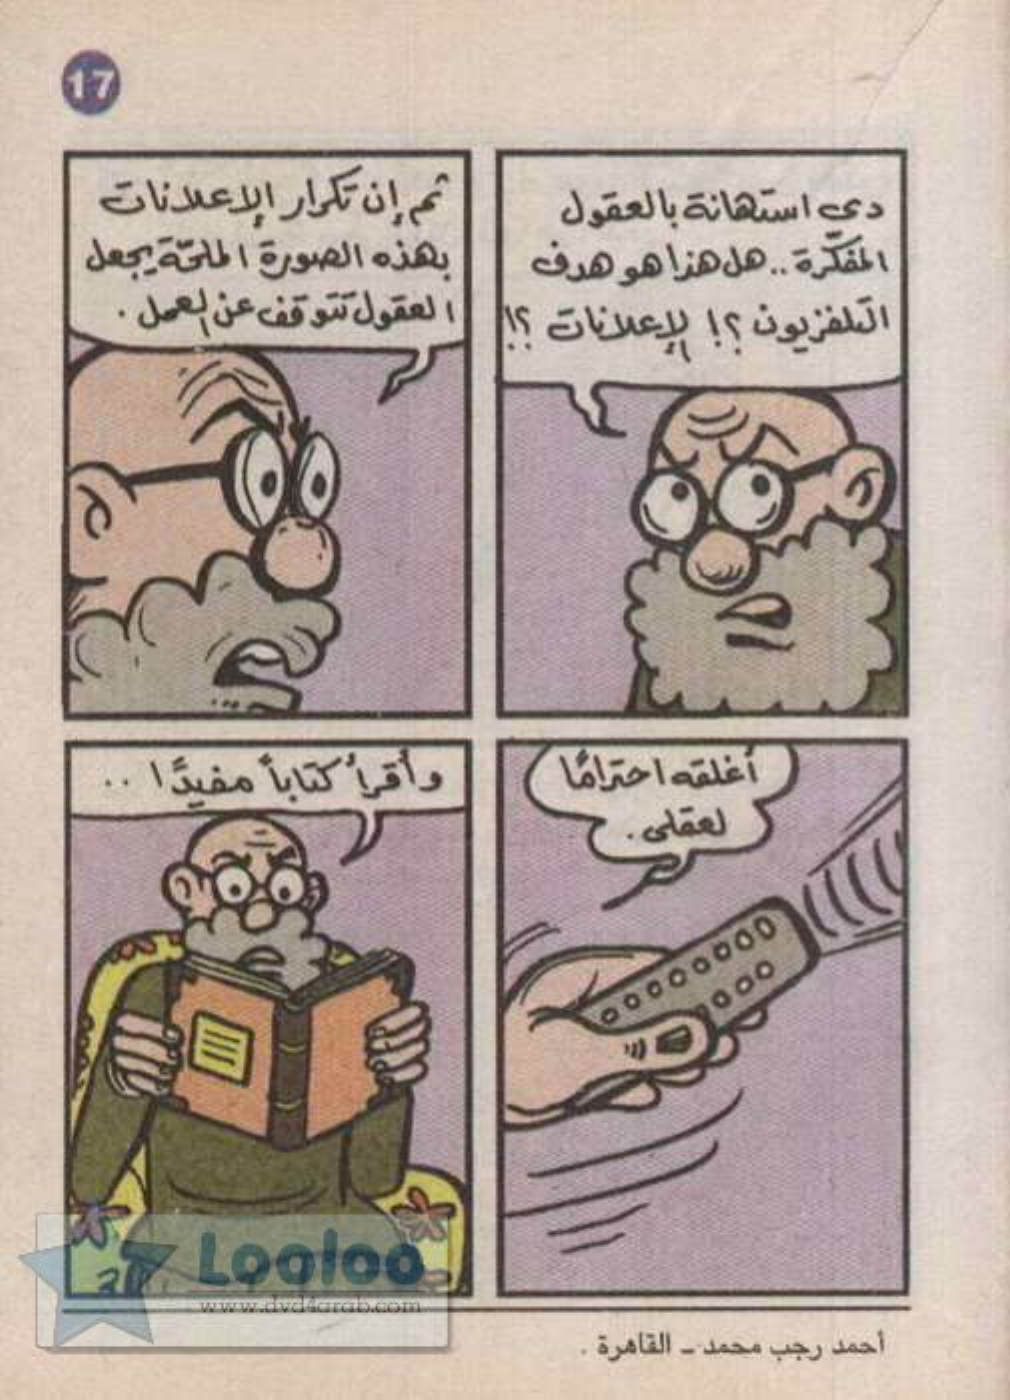 17
دى استهانة بالعقول
المفكّرة .. هل هذا هو هدف
التلفزيون ؟! الإعلانات ؟!
ثم إن تكرار الإعلانات
بهذه الصورة الملحّة يجعل
العقول تتوقف عن العمل .
أغلقه احترامًا
لعقلى .
وأقرأ كتاباً مفيدًا ..
Looloo
www.dvd4arab.com
أحمد رجب محمد ـ القاهرة .